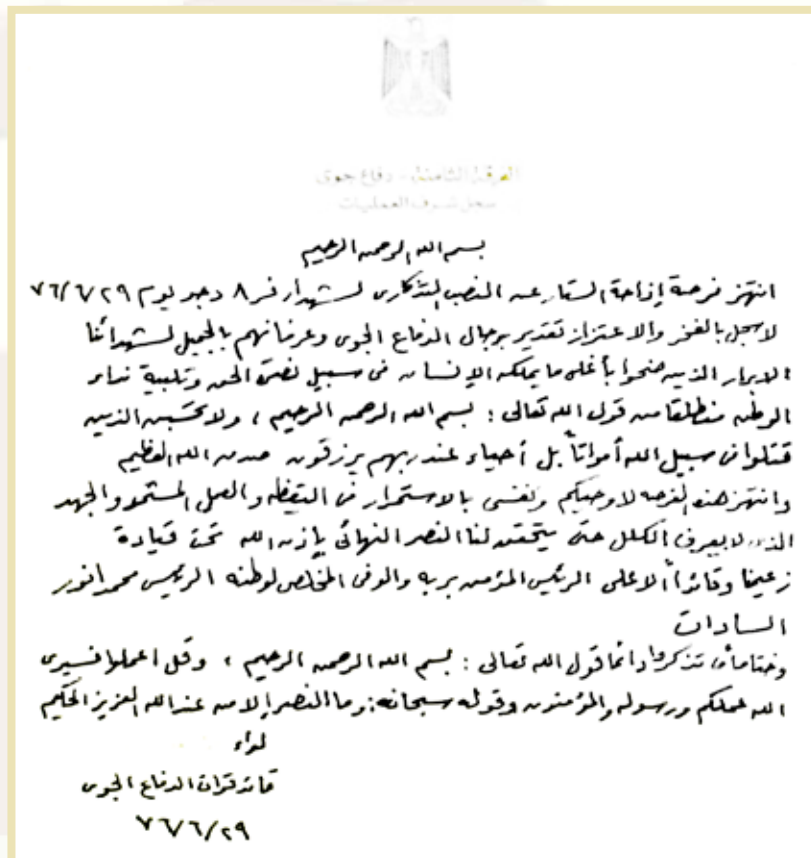 الفرقة الثامنة - دفاع جوى
سجل شرف العمليات
بسم الله الرحمن الرحيم
انتهز فرصة إزاحة الستار عن النصب التذكارى لشهداء فر ٨ دجو يوم ٧٦/٦/٢٩
لاسجل بالفخر والاعتزاز تقدير رجال الدفاع الجوى وعرفانهم بالجميل لشهدائنا
الابرار الذين ضحوا بأغلى ما يملكه الإنسان فى سبيل نصرة الحق وتلبية نداء
الوطن منطلقا من قول الله تعالى : بسم الله الرحمن الرحيم ، ولا تحسبن الذين
قتلوا فى سبيل الله أمواتاً بل أحياء عند ربهم يرزقون صدق الله العظيم
وانتهز هذه الفرصه لاوصيكم ونفسى بالاستمرار فى اليقظه والعمل المستمر والجهد
الذى لا يعرف الكلل حتى يتحقق لنا النصر النهائى بإذن الله تحت قيادة
زعيمنا وقائدنا الاعلى الرئيس المؤمن بربه والوفى المخلص لوطنه الرئيس محمد انور
السادات
وختاما تذكروا دائما قول الله تعالى : بسم الله الرحمن الرحيم ، وقل اعملوا فسيرى
الله عملكم ورسوله والمؤمنون وقوله سبحانه : وما النصر إلا من عند الله العزيز الحكيم
لواء
قائد قوات الدفاع الجوى
٧٦/٦/٢٩